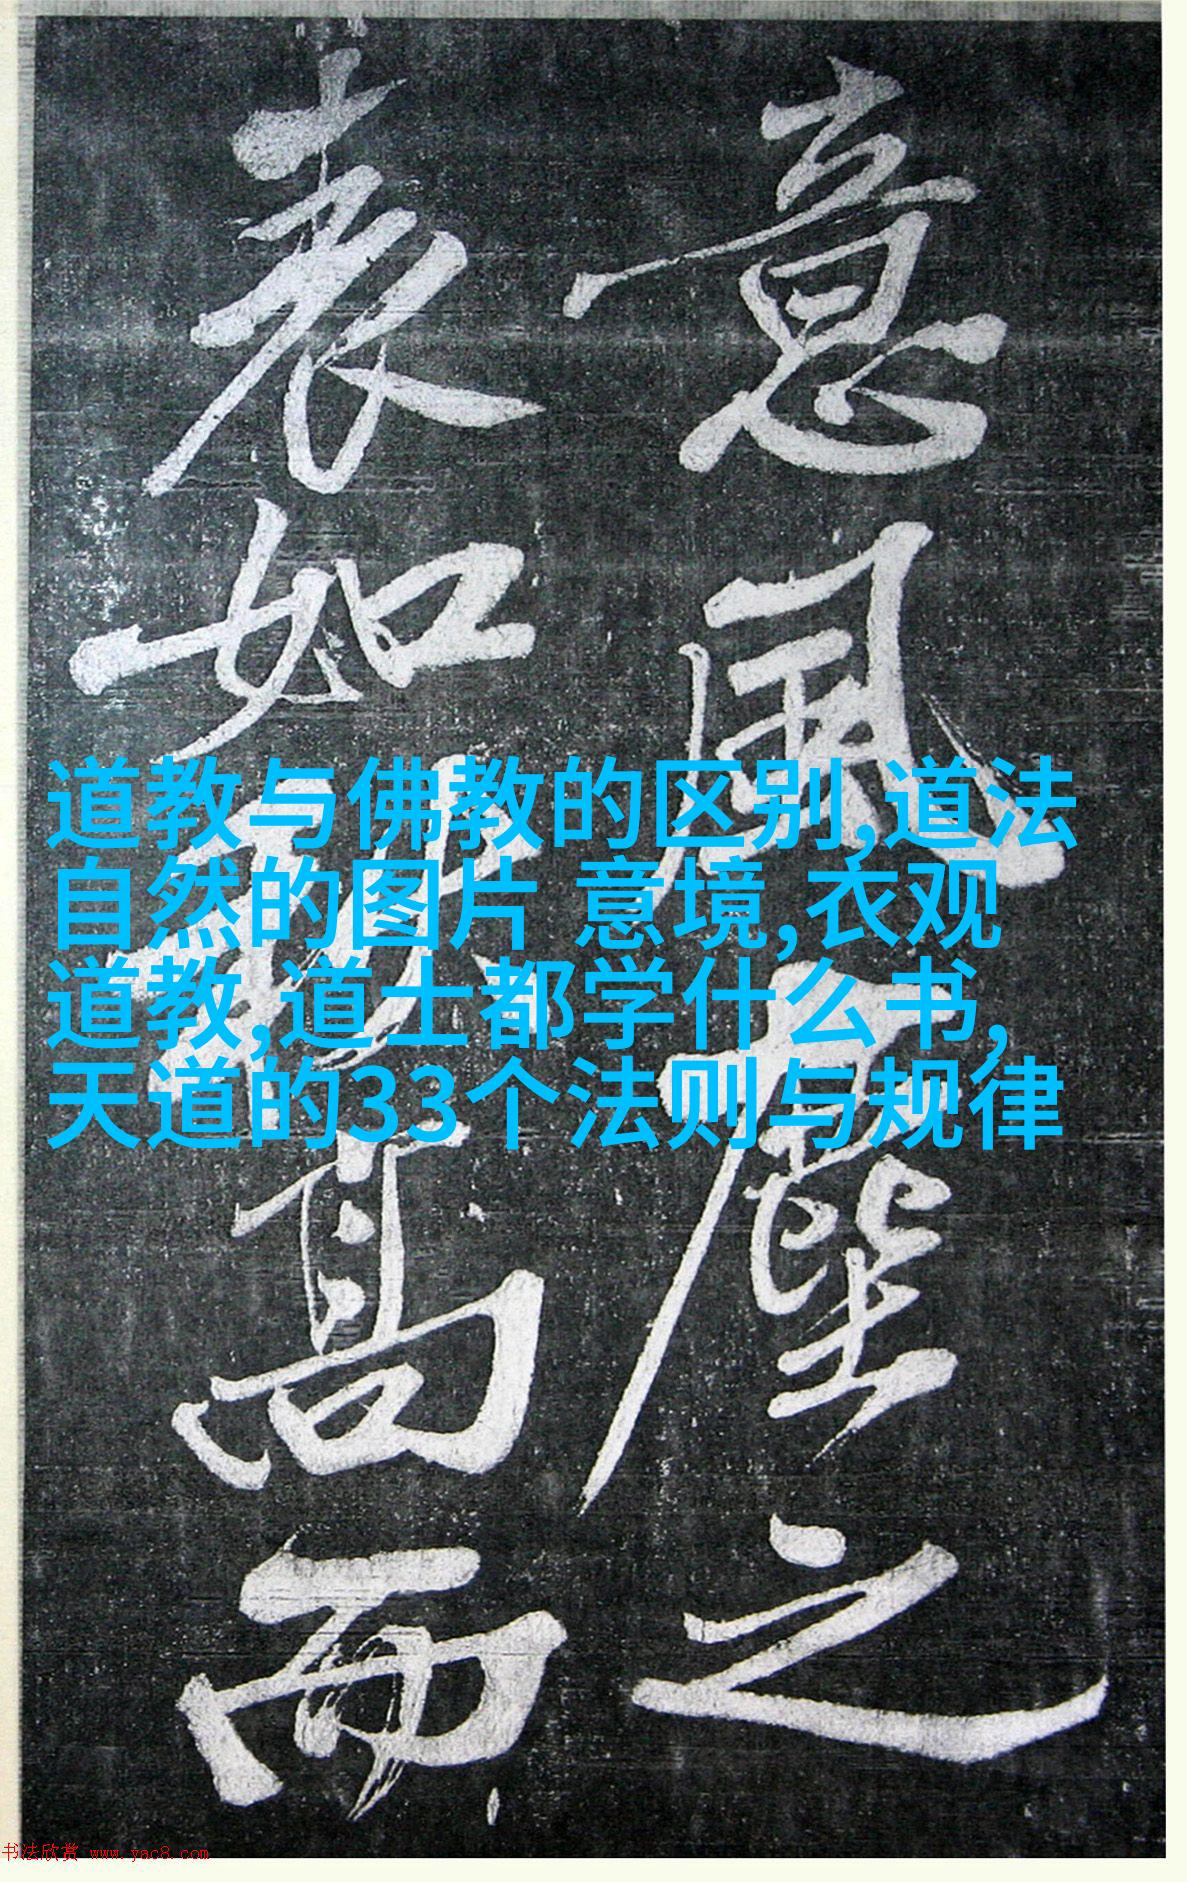 意風塵之
表如高而
道教与佛教的区别,道法
自然的图片 意境,衣观
道教,道士都学什么书,
天道的33个法则与规律
书法欣赏 www.yac8.com